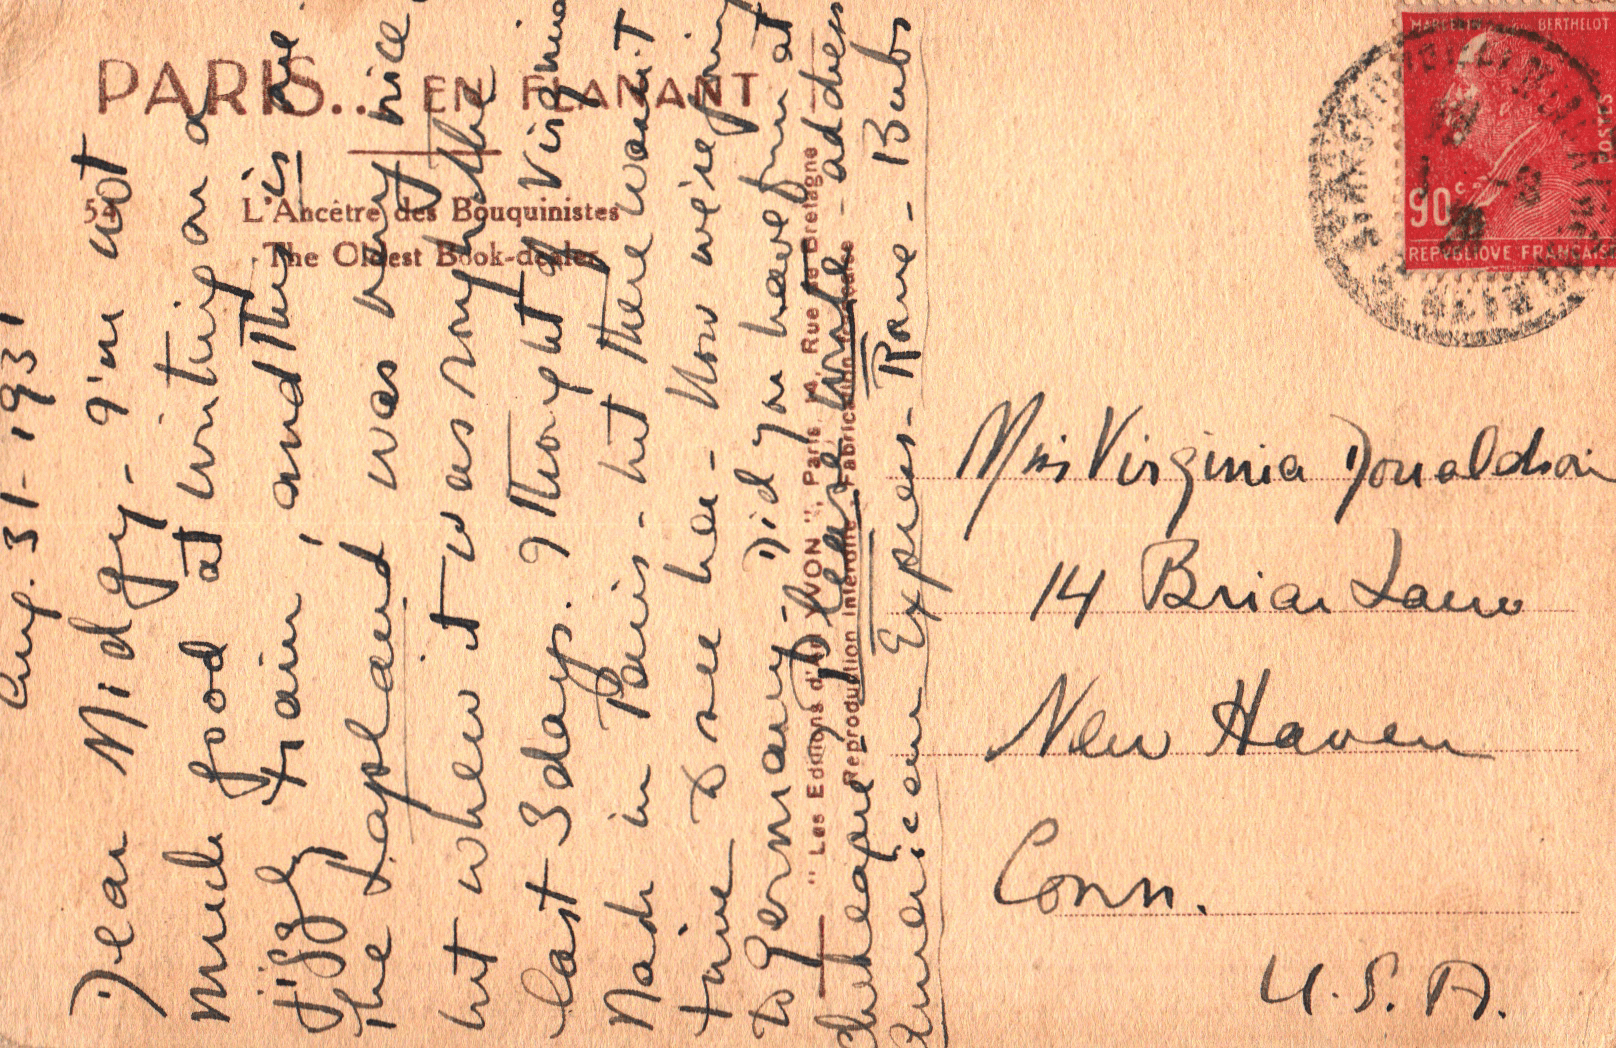 PARIS... EN FLANANT
54
L'Ancêtre des Bouquinistes
The Oldest Book-dealer
"Les Editions d'Art YVON", Paris, Rue de Bretagne
Reproduction interdite - Fabrication française
Aug. 31 - 1931
Dear Midgy - I'm not
much good at writing on a
jiggly train, and this is one.
The Lapland was very nice,
but whew it was rough the
last 3 days. I thought of Virginia
Nash in Paris - but there wasn't
time to see her - Now we're going
to Germany - Did you have fun at
Please write - address
American Express - Rome - Babs
MARCELIN BERTHELOT
POSTES
90c
REPVBLIQVE FRANÇAISE
Miss Virginia Donaldson
14 Briar Lane
New Haven
Conn.
U.S.A.